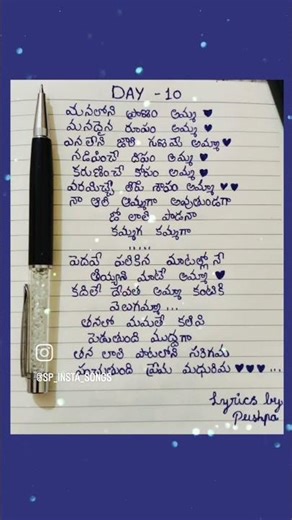 DAY - 10
మనలోని ప్రాణం అమ్మ
మనదైన రూపం అమ్మ
ఎనలేని జాలి గుణమే అమ్మ
నడిపించే దీపం అమ్మ
కరుణించే కోపం అమ్మ
వరమిచ్చే తీపి శాపం అమ్మ
నా ఆలి అమ్మగా అవుతుండగా
జో లాలి పాడనా
కమ్మగ కమ్మగా
.....
పెదవే పలికిన మాటల్లోనే
తియ్యని మాటే అమ్మా
కదిలే దేవత అమ్మా కంటికి
వెలుగమ్మా ...
తనలో మమతే కలిపి
పెడుతుంది ముద్దగా
తన లాలి పాటలోని సరిగమ
పంచుతుంది ప్రేమ మధురిమ ...
Lyrics by
Pushpa
@SP_INSTA_SONGS